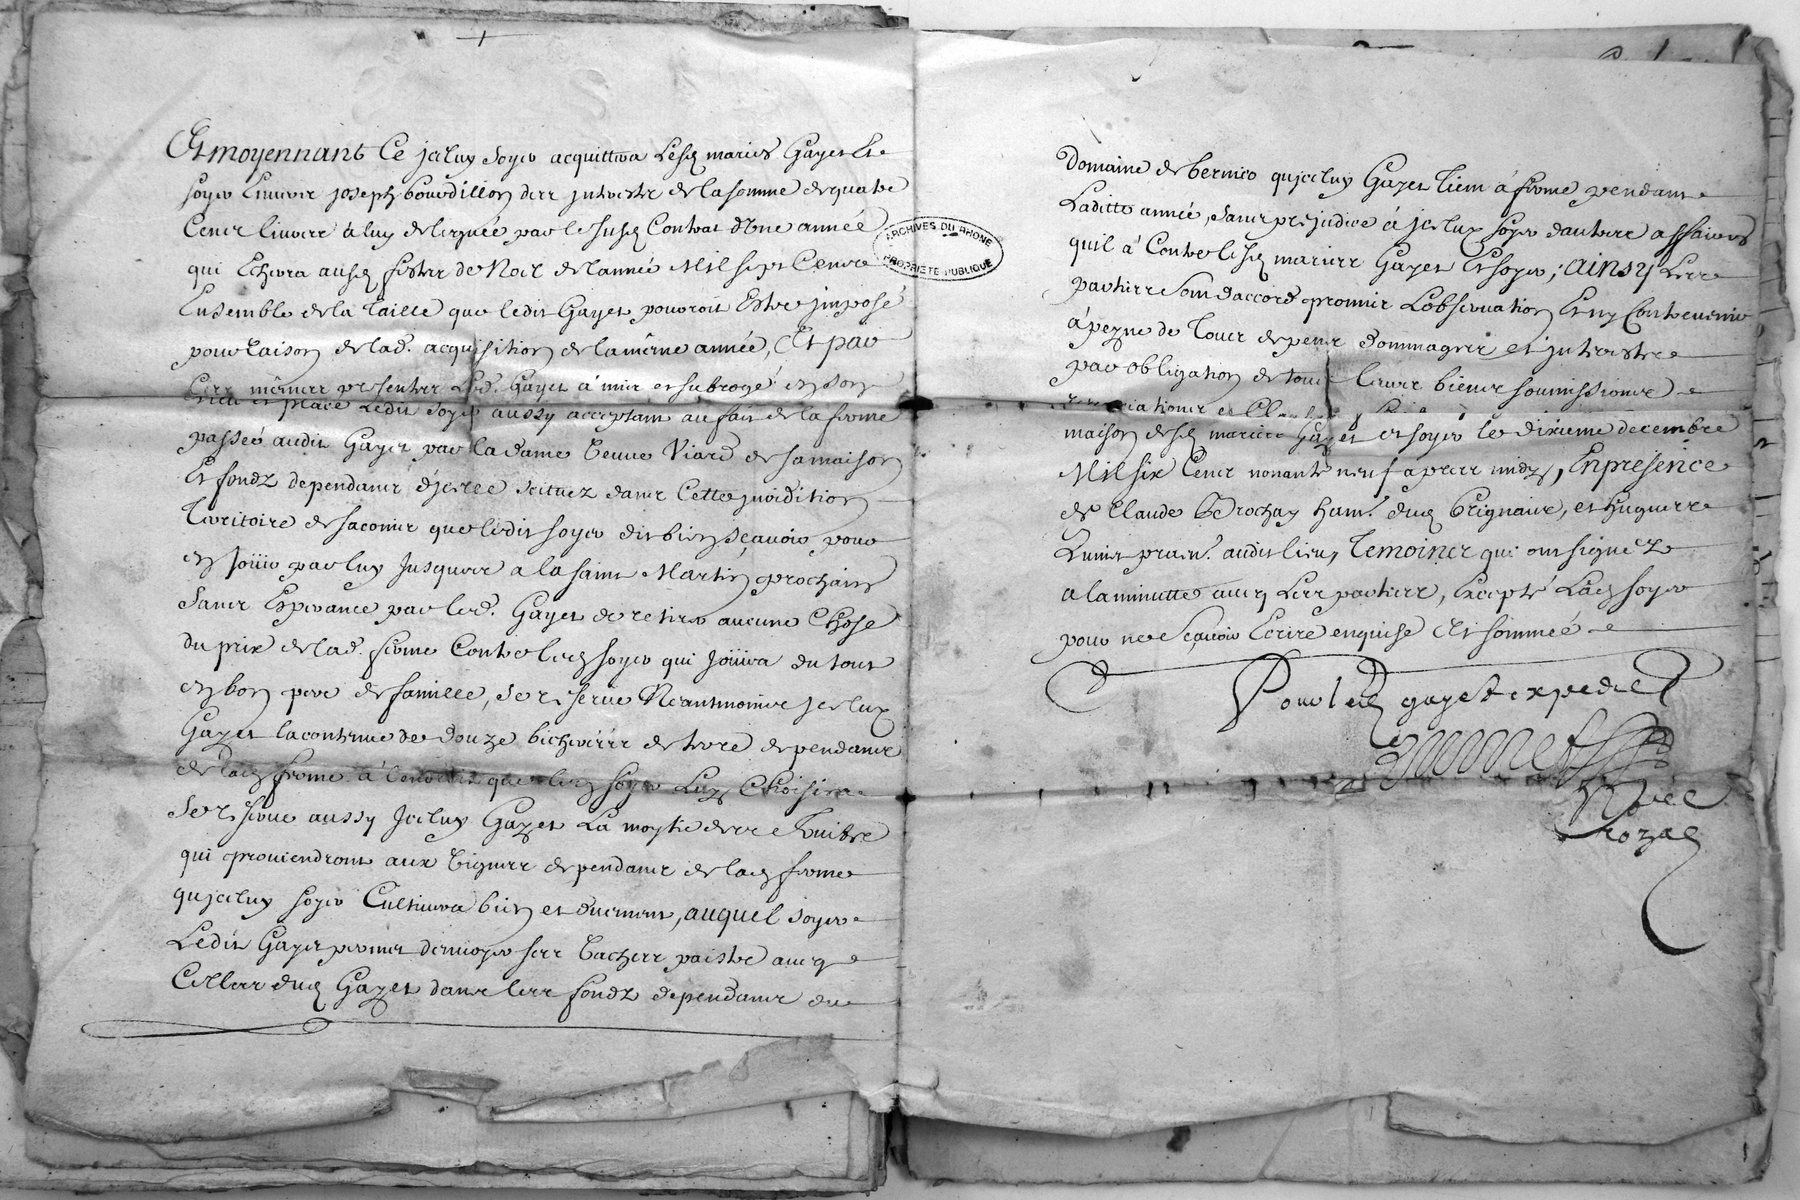 Et moyennant Ce jceluy soyer acquittera Lesd mariés Gayet Et
soyer Envers joseph bourdillon des jnterests de la somme de quatre
Cens livres à luy deleguée par le susd Contrat d'Une année
qui Echerra ausd festes de Noel de l'année Mil sept Cents
Ensemble de la Taille que ledit Gayet pouroit Estre jmposé
pour Raison de lad. acquisition de la même année, Et par
Ces mêmes presentes Led. Gayet à mis et subrogé en son
Lieu et place Ledit soyer aussy acceptant au fait de la ferme
passée audit Gayet par la dame Veuve Viard de sa maison
Et fondz dependans d'jcelle scituez dans Cette juridition
Territoire de saconier que ledit soyer dit bien sçavoir pour
en joüir par luy jusques a la saint Martin prochain
sans Esperance par led. Gayet de retirer aucune Chose
du prix de lad. ferme Contre led soyer qui joüira du tout
en bon pere de famille, se reserve Neantmoins jceluy
Gayet la contenue de douze bicherées de terre dependans
de lad ferme à l'endroit que led soyer Luy Choisira
se reserve aussy jceluy Gayet La moytie des
qui proviendront aux Vignes dependans de lad ferme
qu'jceluy soyer Cultivera bien et duement, auquel soyer
Ledit Gayet permet d'envoyer ses Vaches paistre avec
Celles dud Gayet dans les fondz dependans du
ARCHIVES DU RHONE
PROPRIETE PUBLIQUE
Domaine de bernico qu'jceluy Gayet tient à ferme pendant
Laditte année, sans prejudice à jceluy soyer d'autres affaires
qu'il à Contre lesd mariés Gayet Et soyer; ainsy Les
parties sont d'accord promis L'observation Et n'y Contrevenir
à peyne de tous depens dommages et jnterests
par obligation de tous leurs biens soumissions
renonciations et Clauses
maison desd mariés Gayet et soyer le dixieme decembre
Mil six Cens nonante neuf apres midy, En presence
de Claude Derochay hant. dud brignais, et hugues
Lunis prain. audit lieu, temoins qui ont signé
a la minutte avec Les parties, Excepté Lad soyer
pour ne sçavoir Ecrire enquise Et sommée
Pour led gayet expedié
Noée
royal